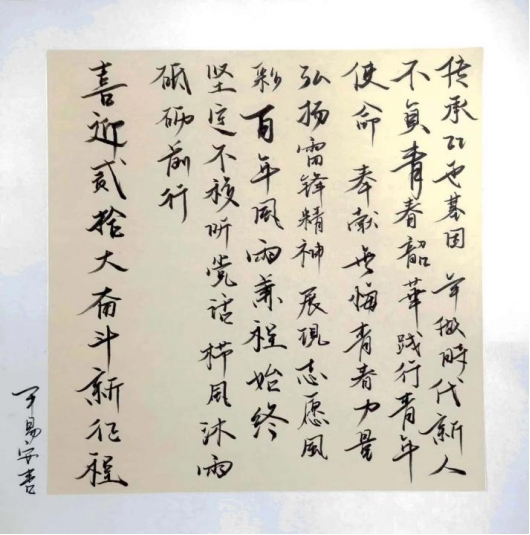 传承红色基因 争做時代新人
不負青春韶華 践行青年
使命 奉献无悔青春力量
弘扬雷锋精神 展現志愿風
彩 百年風雨兼程始终
坚定不移听党话 栉風沐雨
砥砺前行
喜迎贰拾大奋斗新征程
易安書